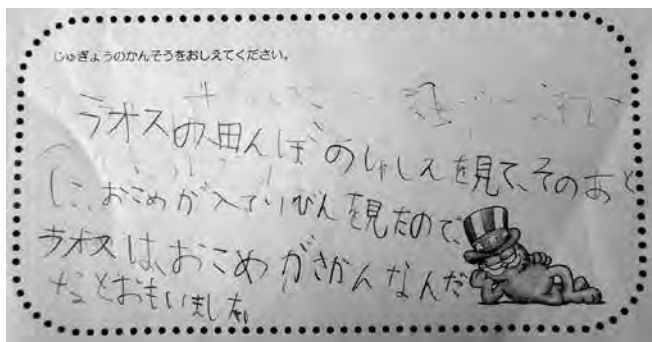 じゅぎょうのかんそうをおしえてください。
ラオスの、田んぼのしゃしんを見て、そのあと
に、おこめが入ってりびんを見たので、
ラオスは、おこめがさかんなんだ
なとおもいました。